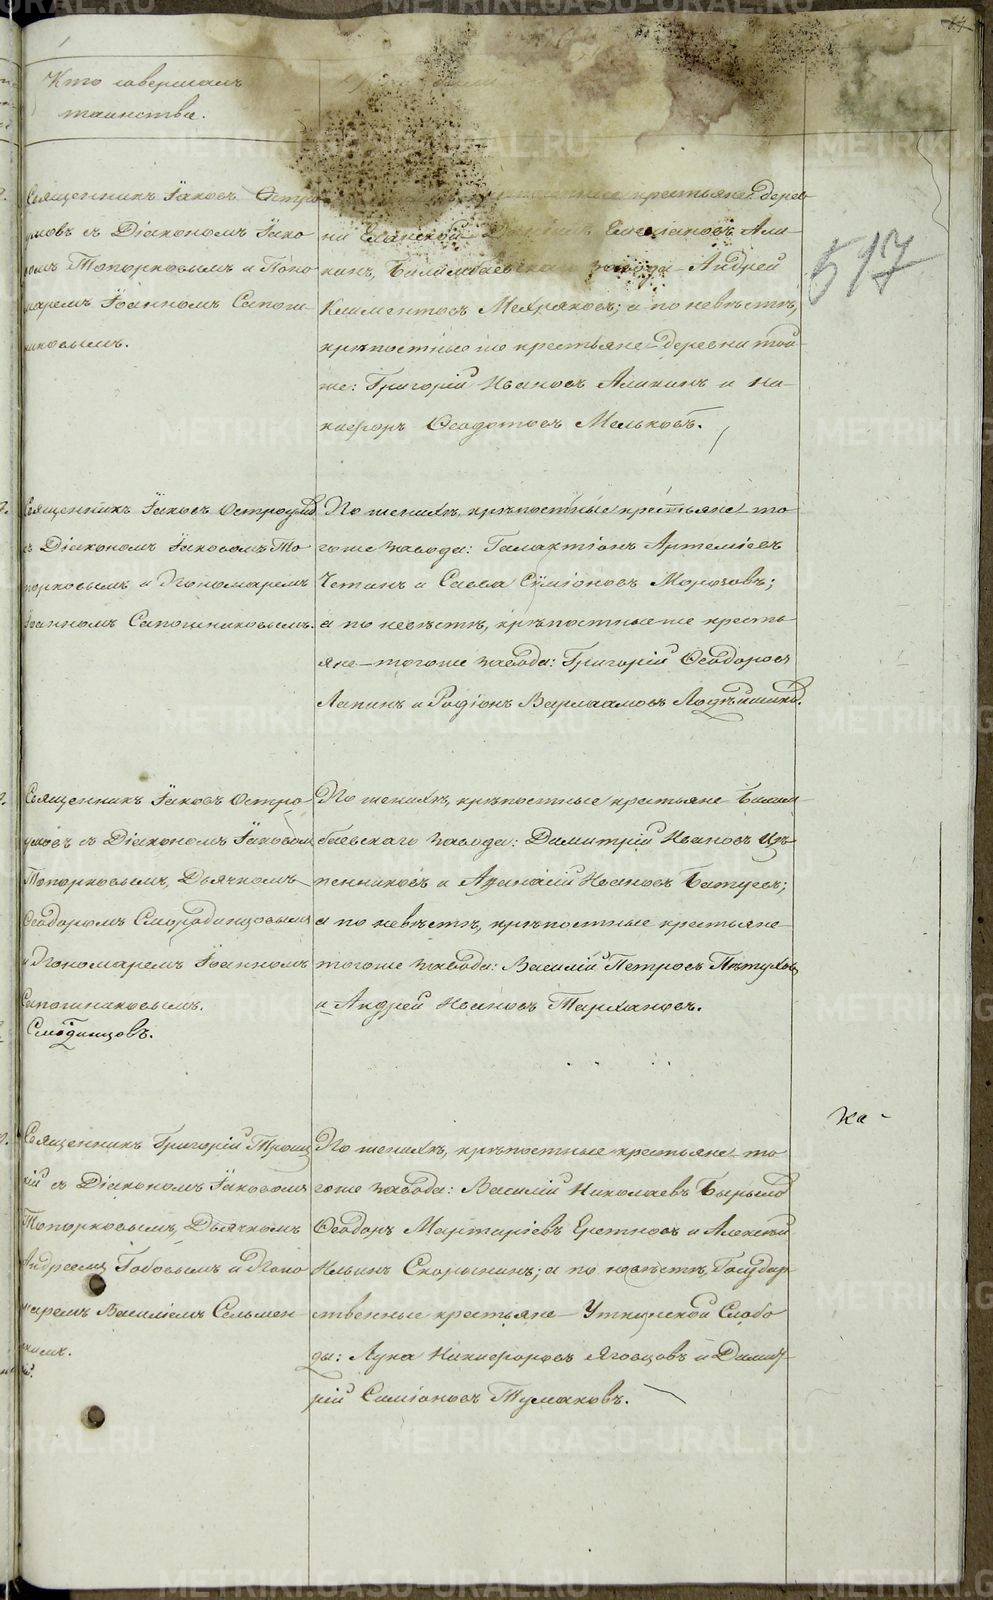 Кто совершалъ
таинства.
517
Священникъ Іаковъ Остро
умовъ съ Діакономъ Іако
вомъ Топорковымъ и Поно
маремъ Іоанномъ Сапож
никовымъ.
крестьяне дерев
ни Еланской Емеліановъ Али
кинъ, Билимбаевскаго завода Андрей
Климентовъ Мехряковъ; а по невѣстѣ,
крѣпостные же крестьяне деревни той
же: Григорій Ивановъ Аликинъ и Ни
кифоръ Ѳеодотовъ Мельковъ.
Священникъ Іаковъ Остроумовъ
съ Діакономъ Іаковомъ То
порковымъ и Пономаремъ
Іоанномъ Сапожниковымъ.
По женихѣ, крѣпостные крестьяне то
гоже завода: Галактіонъ Артеміевъ
Чепинъ и Савва Сѵміоновъ Морозовъ;
а по невѣстѣ, крѣпостные же кресть
яне тогоже завода: Григорій Ѳеодоровъ
Лапинъ и Родіонъ Варлаамовъ
Священникъ Іаковъ Остро
умовъ съ Діакономъ Іаковомъ
Топорковымъ, Дьячкомъ
Ѳеодоромъ Смородинцовымъ
и Пономаремъ Іоанномъ
Сапожниковымъ.
Смодинцовъ.
По женихѣ, крѣпостные крестьяне Билим
баевскаго завода: Димитрій Ивановъ
и Аѳанасій Ивановъ Батуевъ;
а по невѣстѣ, крѣпостные крестьяне
тогоже завода: Василій Петровъ Пѣтуховъ
и Андрей Ивановъ Тархановъ.
Ка-
Священникъ Григорій Троиц
кій съ Діакономъ Іаковомъ
Топорковымъ, Дьячкомъ
Андреемъ Гобовымъ и Поно
маремъ Василіемъ Сельмен
скимъ.
По женихѣ, крѣпостные крестьяне то
гоже завода: Василій Николаевъ
Ѳеодоръ Мартиріевъ Еретновъ и Алексѣй
Ильинъ Скорынинъ; а по невѣстѣ, Государ
ственные крестьяне Уткинской Слобо
ды: Лука Никифоровъ Яговцовъ и Димит
рій Симіоновъ Тумаковъ.